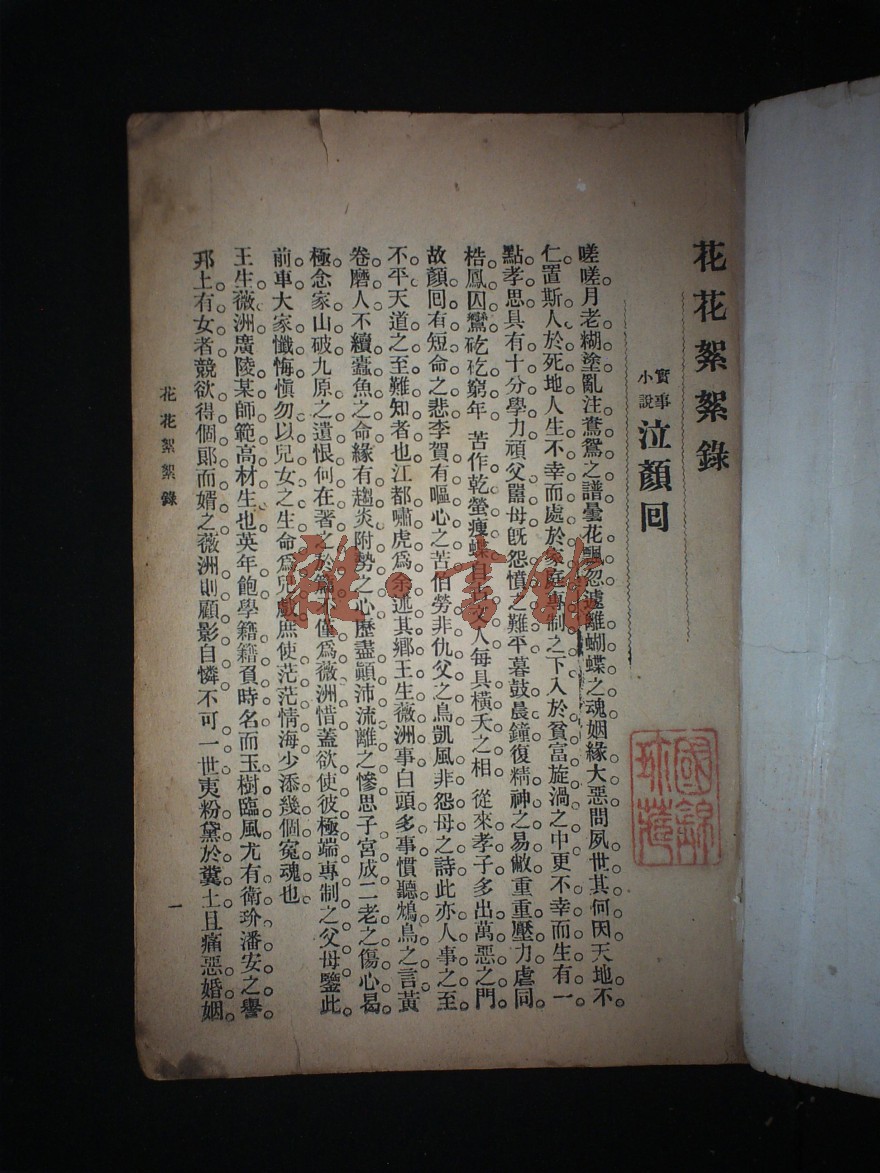 花花絮絮錄
實事
小說
泣顏回
嗟嗟月老糊塗亂注鴛鴦之譜曇花飄忽遽離蝴蝶之魂姻緣大惡問夙世其何因天地不
仁置斯人於死地人生不幸而處於家庭專制之下入於貧富旋渦之中更不幸而生有一
點孝思具有十分學力頑父嚚母旣怨憤之難平暮鼓晨鐘復精神之易敝重重壓力虐同
梏鳳囚鸞矻矻窮年 苦作乾螢瘦蝶自古文人每具橫夭之相 從來孝子多出萬惡之門
故顏回有短命之悲李賀有嘔心之苦伯勞非仇父之鳥凱風非怨母之詩此亦人事之至
不平天道之至難知者也江都嘯虎爲余述其鄉王生薇洲事白頭多事慣聽鴆鳥之言黃
卷磨人不續蠹魚之命緣有趨炎附勢之心歷盡顚沛流離之慘思子宮成二老之傷心曷
極念家山破九原之遺恨何在著之於篇不僅爲薇洲惜蓋欲使彼極端專制之父母鑒此
前車大家懺悔愼勿以兒女之生命爲兒戲庶使茫茫情海少添幾個冤魂也
王生薇洲廣陵某師範高材生也英年飽學籍籍負時名而玉樹臨風尤有衛玠潘安之譽
邗上有女者競欲得個郞而婿之薇洲則顧影自憐不可一世夷粉黛於糞土且痛惡婚姻
花花絮絮錄
一
雜·書館